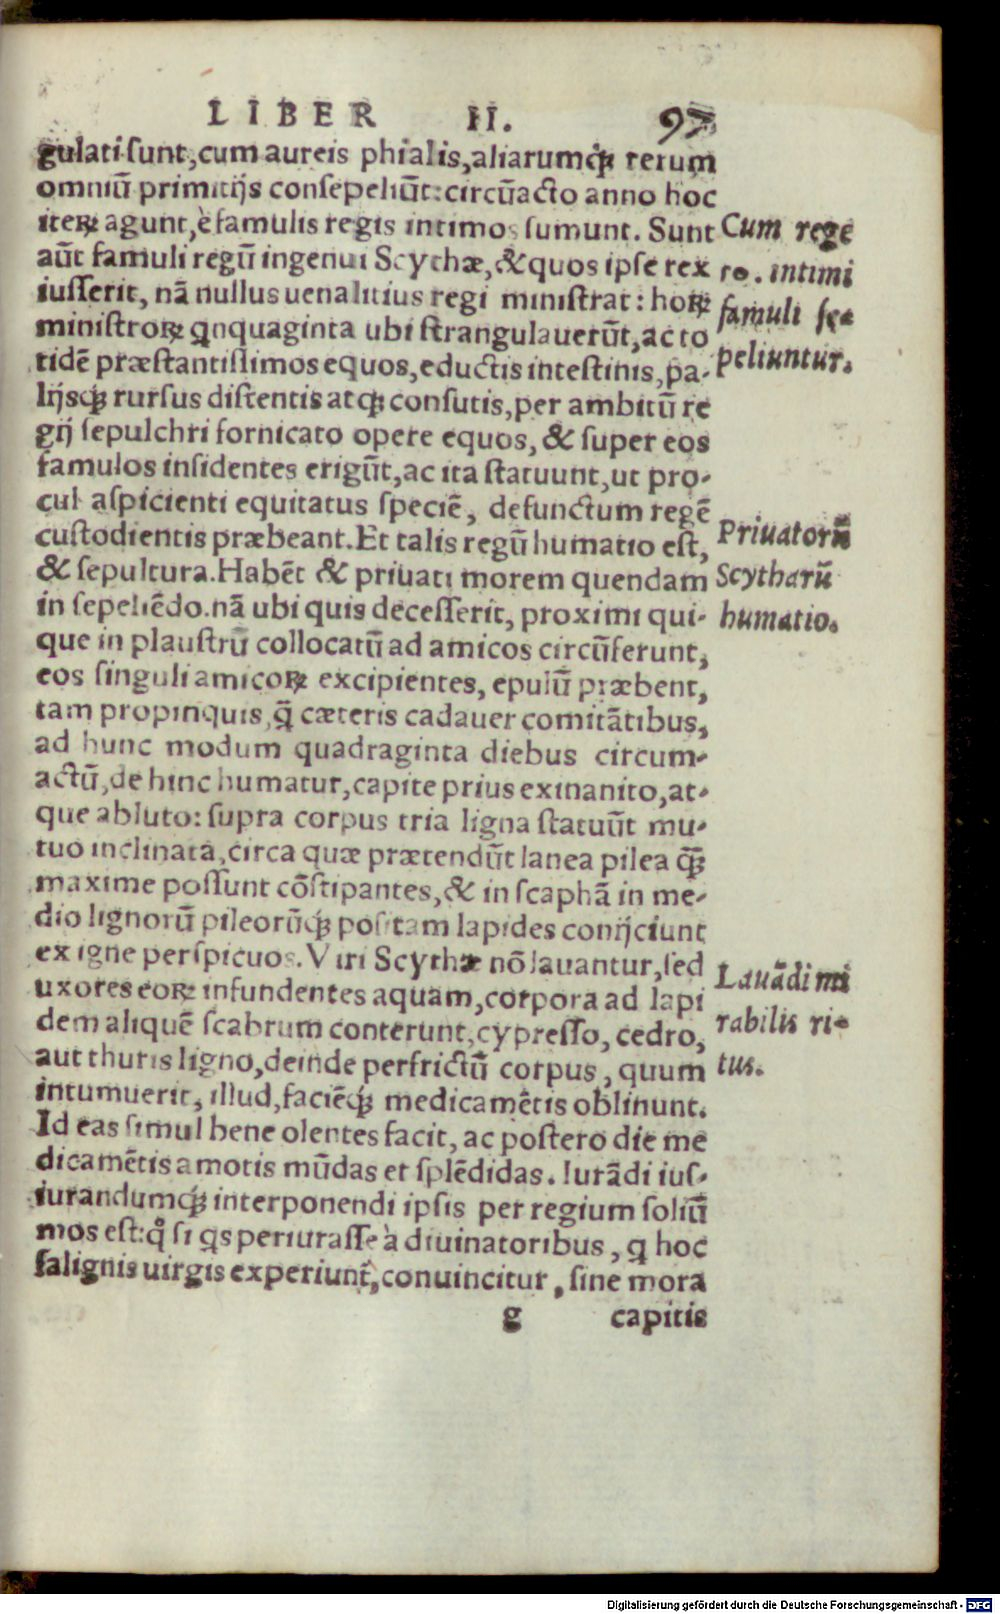 LIBER II. 97
gulati sunt, cum aureis phialis, aliarumq́ꝫ rerum
omniū primitijs consepeliūt: circūacto anno hoc
iteꝝ agunt, è famulis regis intimos sumunt. Sunt
aūt famuli regū ingenui Scythæ, & quos ipse rex
iusserit, nā nullus uenalitius regi ministrat: hoꝝ
ministroꝝ qnquaginta ubi strangulauerūt, ac to
tidē præstantissimos equos, eductis intestinis, pa-
lijsq́ꝫ rursus distentis atq́ꝫ consutis, per ambitū re
gij sepulchri fornicato opere equos, & super eos
famulos insidentes erigūt, ac ita statuunt, ut pro-
cul aspicienti equitatus speciē, defunctum regē
custodientis præbeant. Et talis regū humatio est,
& sepultura. Habēt & priuati morem quendam
in sepeliēdo. nā ubi quis decesserit, proximi qui-
que in plaustrū collocatū ad amicos circūferunt,
eos singuli amicoꝝ excipientes, epulū præbent,
tam propinquis, q̄ cæteris cadauer comitātibus,
ad hunc modum quadraginta diebus circum-
actū, de hinc humatur, capite prius exinanito, at-
que abluto: supra corpus tria ligna statuūt mu-
tuo inclinata, circa quæ prætendūt lanea pilea q̄ꝫ
maxime possunt cōstipantes, & in scaphā in me-
dio lignorū pileorūq́ꝫ positam lapides conijciunt
ex igne perspicuos. Viri Scythæ nō lauantur, sed
uxores eoꝝ infundentes aquam, corpora ad lapi
dem aliquē scabrum conterunt, cypresso, cedro,
aut thuris ligno, deinde perfrictū corpus, quum
intumuerit, illud, faciēq́ꝫ medicamētis oblinunt.
Id eas simul bene olentes facit, ac postero die me
dicamētis amotis mūdas et splēdidas. Iurādi ius-
iurandumq́ꝫ interponendi ipsis per regium soliū
mos est: q̊ si qs periurasse à diuinatoribus, q hoc
salignis uirgis experiunt̃, conuincitur, sine mora
g capitis
Cum rege
ro. intimi
famuli se-
peliuntur.
Priuatorū
Scytharū
humatio.
Lauādi mi
rabilis ri-
tus.
Digitalisierung gefördert durch die Deutsche Forschungsgemeinschaft - DFG